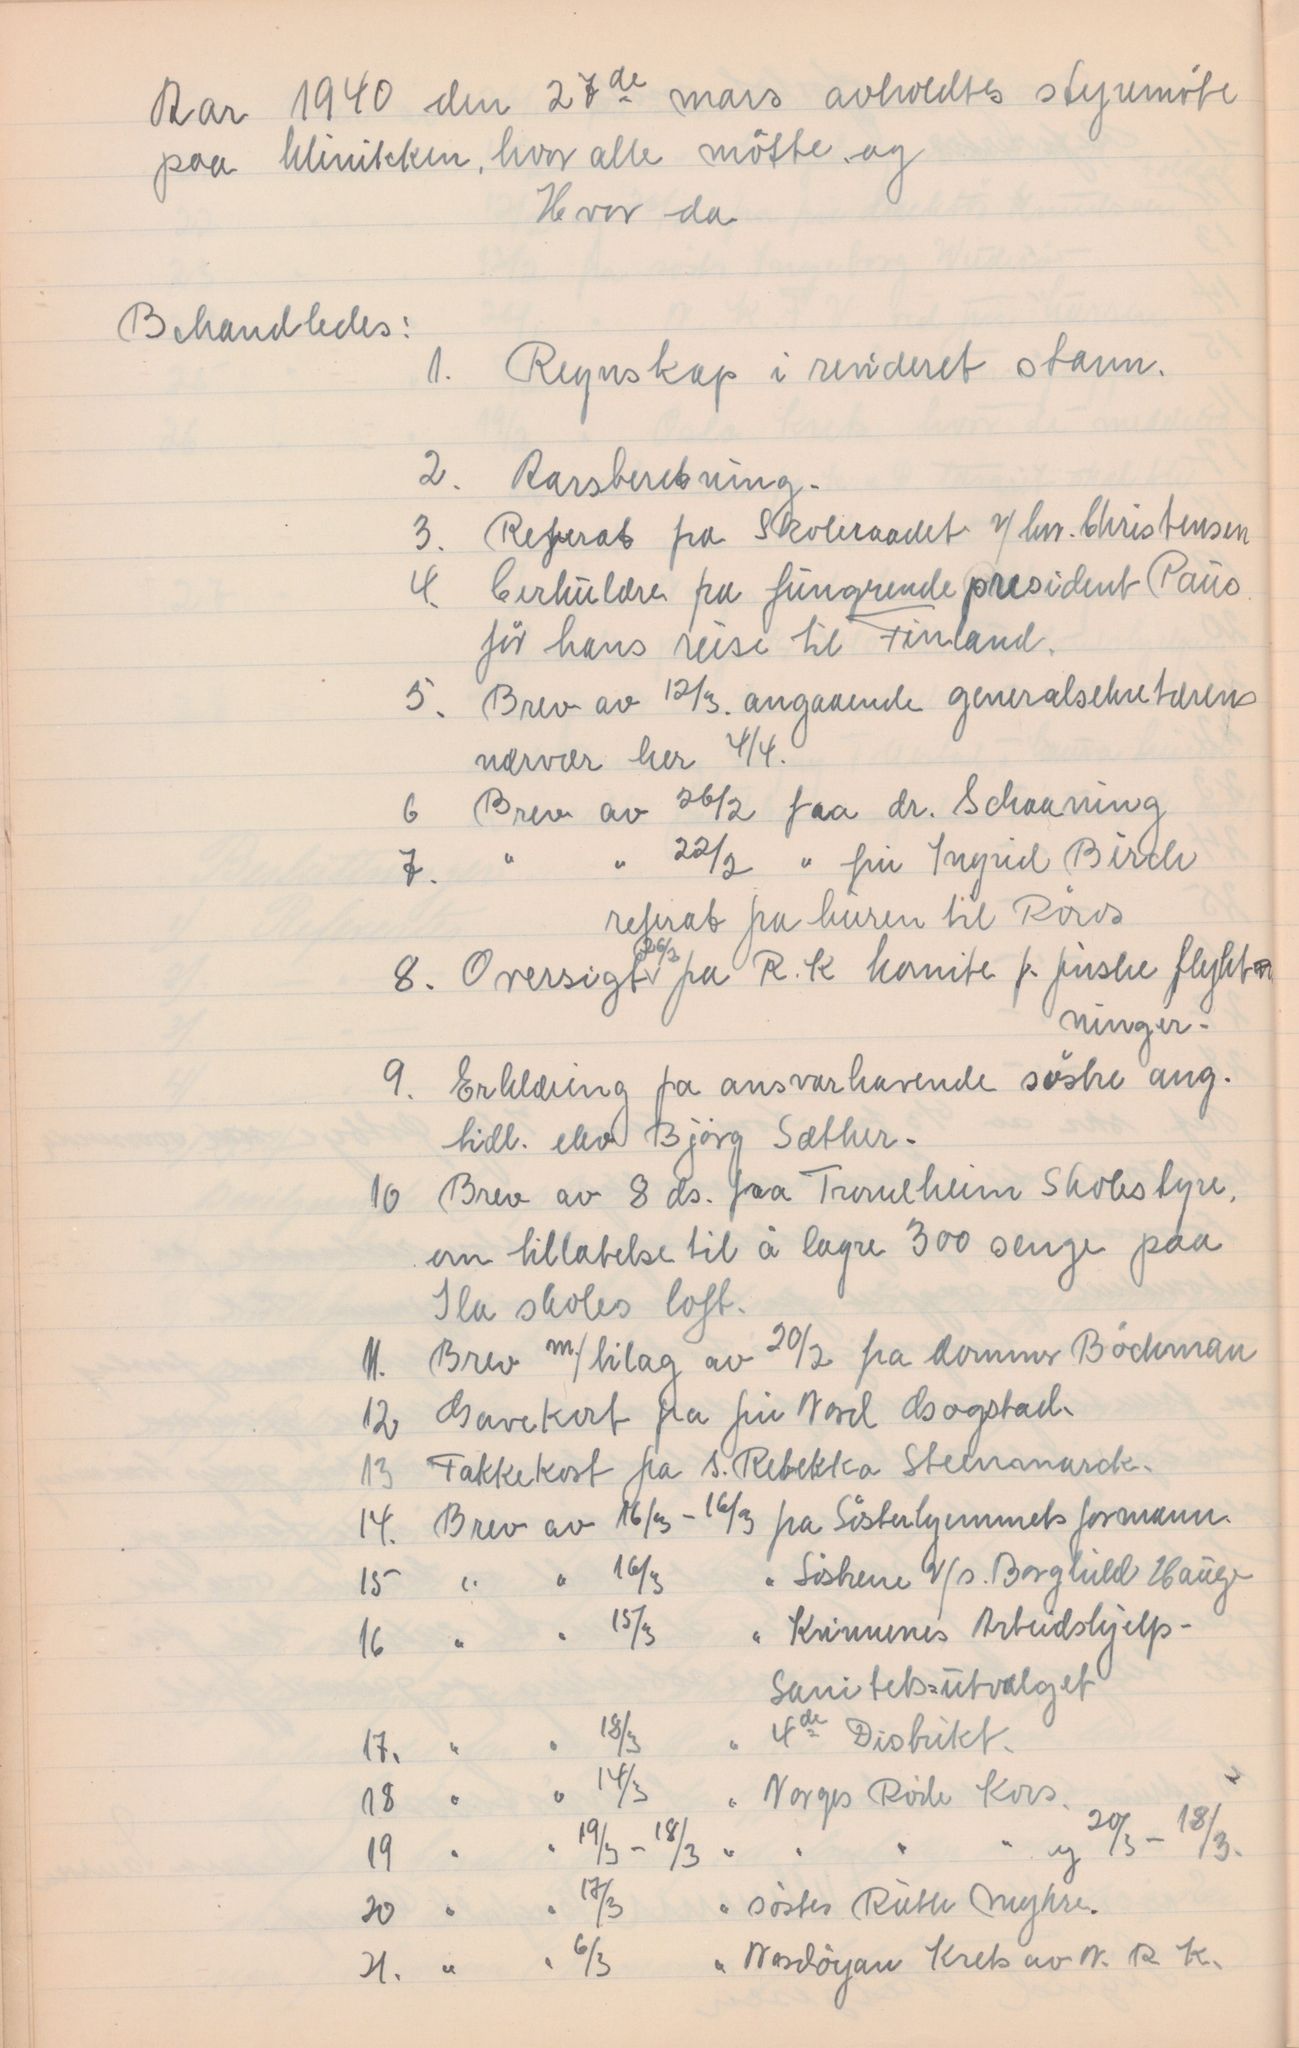 Aar 1940 den 27de mars avholdtes styremöte
paa klinikken, hvor alle mötte og
Hvor da
Behandledes:
1. Regnskap i revideret stann.
2. Aarsberetning.
3. Referat fra Skoleraadet v/ frk. Christensen
4. Cirkulære fra fungerende president Paus
för hans reise til Finland.
5. Brev av 12/3. angaaende generalsekretærens
nærvær her 4/4.
6 Brev av 26/2 fraa dr. Schaaning
7. " " 22/2 " fru Ingrid Birch
referat fra turen til Röros
8. Oversigt 26/3 fra R.K komite f. finske flykt
ninger.
9. Erklæring fra ansvarhavende söstre ang.
tidl. elev Björg Sæther.
10 Brev av 8 ds. fraa Trondheim Skolestyre,
om tillatelse til å lagre 300 senge paa
Ila skoles loft.
11. Brev m/bilag av 20/2 fra dommer Böckman
12 Gavekort fra fru Nord Gogstad.
13 Takkekort fra s. Rebekka Steenmarck.
14. Brev av 16/3 - 16/3 fra Sösterhjemmets formann.
15 " " 16/3 " Söstrene v/s. Borghild Hauge
16 " " 15/3 " Kvinnenes Arbeidshjelp-
Sanitets=utvalget
17. " " 18/3 " 4de Distrikt.
18 " " 14/3 " Norges Röde Kors.
19 " " 19/3 - 18/3 " " " " og 20/3 - 18/3.
20 " " 17/3 " söster Ruth Myhre.
21. " " 6/3 " Nordöyan Krets av N. R. K.